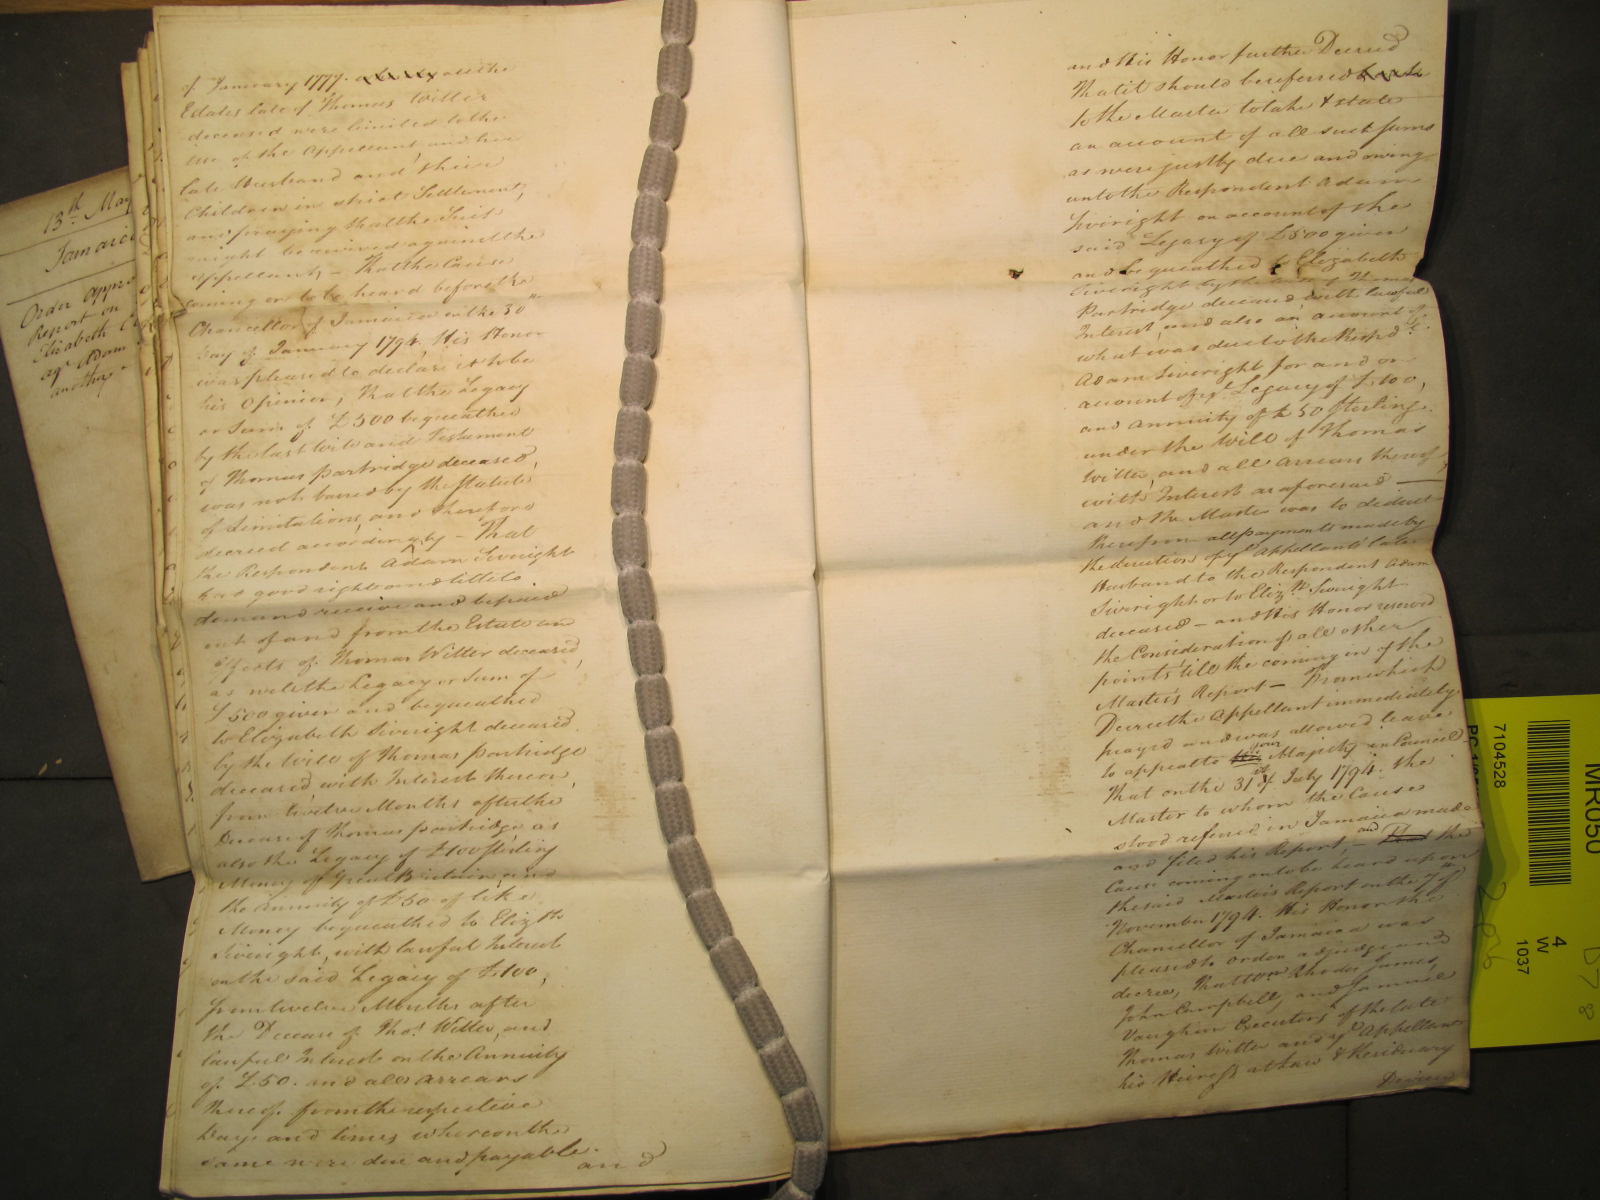 13th May
Jamaica
Order appr
Report on
Elizabeth
agt Adam
another
of January 1777. all the
Estates late of Thomas Witter
deceased were limited to the
use of the Appellant and her
late Husband and their
Children in strict Settlement,
and praying that the Suit
might be revived against the
Appellants – That the Cause
coming on to be heard before the
Chancellor of Jamaica on the 30th
day of January 1794. His Honor
was pleased to declare it to be
his Opinion, that the Legacy
or Sum of £500 bequeathed
by the last Will and Testament
of Thomas Partridge deceased,
was not barred by the Statute
of Limitations, and therefore
decreed accordingly – That
the Respondent Adam Sivright
had good right and title to
demand receive and be paid
out of and from the Estate and
Effects of Thomas Witter deceased,
as well the Legacy or Sum of
£500 given and bequeathed
to Elizabeth Sivright deceased
by the Will of Thomas Partridge
deceased, with Interest thereon,
from twelve Months after the
Decease of Thomas Partridge as
also the Legacy of £100 sterling
Money of Great Britain, and
the Annuity of £50 of like
Money bequeathed to Elizth
Sivright, with lawful Interest
on the said Legacy of £100,
from twelve Months after
the Decease of Thos. Witter, and
lawful Interest on the Annuity
of £50. and all Arrears
thereof from the respective
Days and times whereon the
same were due and payable.
and
and His Honor further Decreed
That it should be referred back
to the Master to take & state
an account of all such sums
as were justly due and owing
unto the Respondent Adam
Sivright on account of the
said Legacy of £500 given
and bequeathed to Elizabeth
Sivright by the Will of Thomas
Partridge deceased with lawful
Interest, and also an account of
what was due to the Respdt.
Adam Sivright for and on
account of ye. Legacy of £100,
and annuity of £50 Sterling
under the Will of Thomas
Witter, and all Arrears thereof
with Interest as aforesaid —
and the Master was to deduct
therefrom all payments made by
the direction of ye Appellants late
Husband to the Respondent Adam
Sivright or to Elizth. Sivright
deceased – and His Honor reserved
the Consideration of all other
points till the coming in of the
Master's Report – From which
Decree the Appellant immediately
prayed and was allowed leave
to appeal to your Majesty in Council
That on the 31st of July 1794. the
Master to whom the Cause
stood referred in Jamaica made
and filed his Report, – and That the
Cause coming on to be heard upon
the said Master's Report on the 7th of
November 1794. His Honor the
Chancellor of Jamaica was
pleased to order adjudge and
decree, that Rhodes James,
John Campbell, and Samuel
Vaughan Executors of the late
Thomas Witter and ye Appellant
his Heiress at Law & Residuary
Devisee
7104528
MR050
4
W
1037